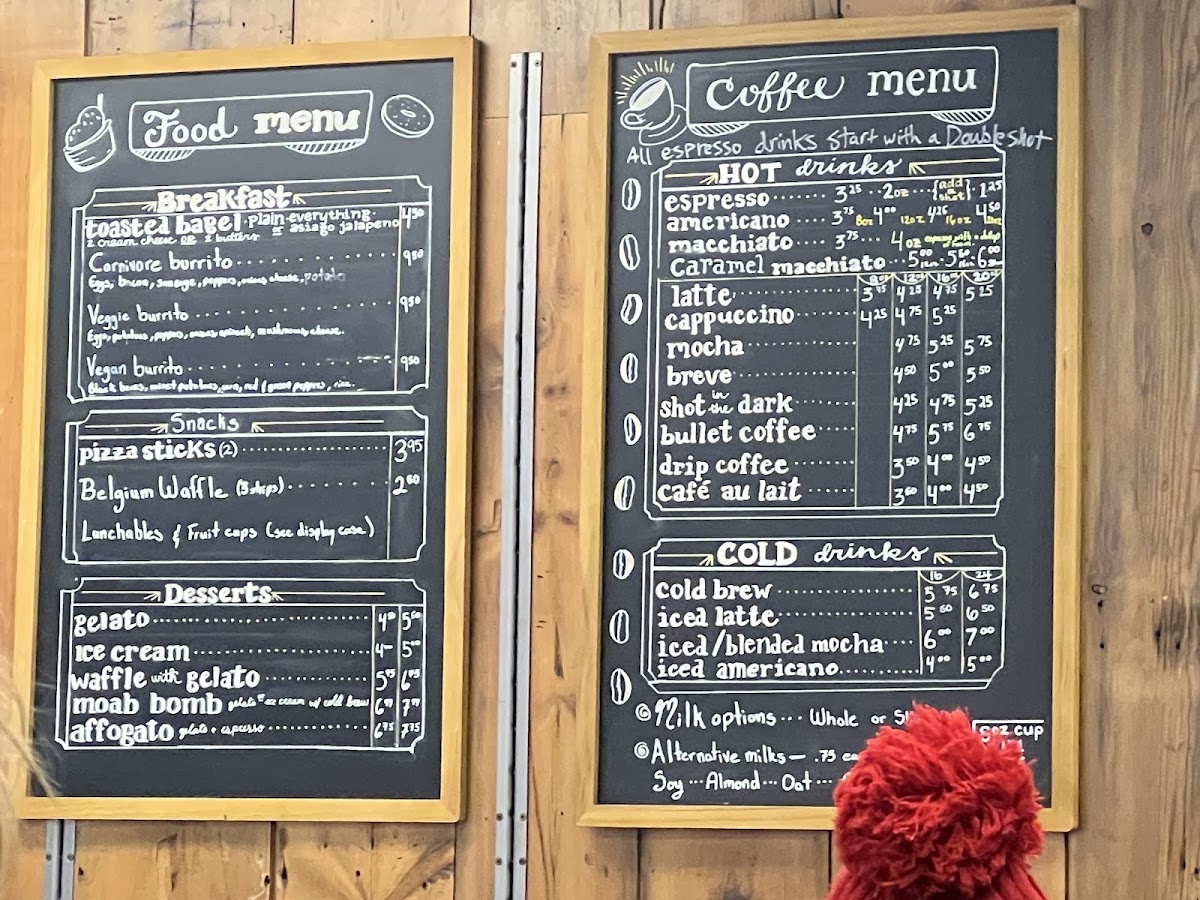 Food menu
Breakfast
toasted bagel · plain · everything · or asiago jalapeno 4 50
2 cream cheese OR 2 butters
Carnivore burrito 9 50
Eggs, bacon, sausage, peppers, onions, cheese, potato
Veggie burrito 9 50
Eggs, potatoes, peppers, onions, spinach, mushrooms, cheese.
Vegan burrito 9 50
Black beans, potatoes, corn, red & green peppers, rice.
Snacks
pizza sticks (2) 3 95
Belgium Waffle (3 strips) 2 60
Lunchables & Fruit cups (see display case)
Desserts
gelato 4 50 5 50
ice cream 4 — 5 00
waffle with gelato 5 95 6 95
moab bomb gelato or ice cream w/ cold brew
affogato gelato + espresso 6 75 7 75
Coffee menu
All espresso drinks start with a Double Shot
HOT drinks
espresso 3 25 2oz {add a shot} 1.25
americano 3 75 8oz 4 00 12oz 4 25 16oz 4 50 20oz
macchiato 3 75 4oz espresso with a dollop of foam
Caramel macchiato 5 00 5 50 6 00
8oz 12oz 16oz 20oz
latte 3 75 4 25 4 75 5 25
cappuccino 4 25 4 75 5 25
mocha 4 75 5 25 5 75
breve 4 50 5 00 5 50
shot in the dark 4 25 4 75 5 25
bullet coffee 4 75 5 75 6 75
drip coffee 3 50 4 00 4 50
café au lait 3 50 4 00 4 50
COLD drinks
16 24
cold brew 5 75 6 75
iced latte 5 50 6 50
iced/blended mocha 6 00 7 00
iced americano 4 00 5 00
Milk options ... Whole or
cup
Alternative milks — .75
Soy ... Almond ... Oat